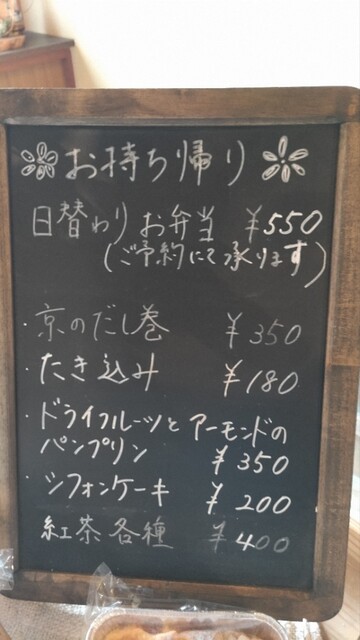 お持ち帰り
日替わりお弁当 ¥550
(ご予約にて承ります)
・京のだし巻 ¥350
・たき込み ¥180
・ドライフルーツとアーモンドの
パンプリン ¥350
・シフォンケーキ ¥200
紅茶各種 ¥400